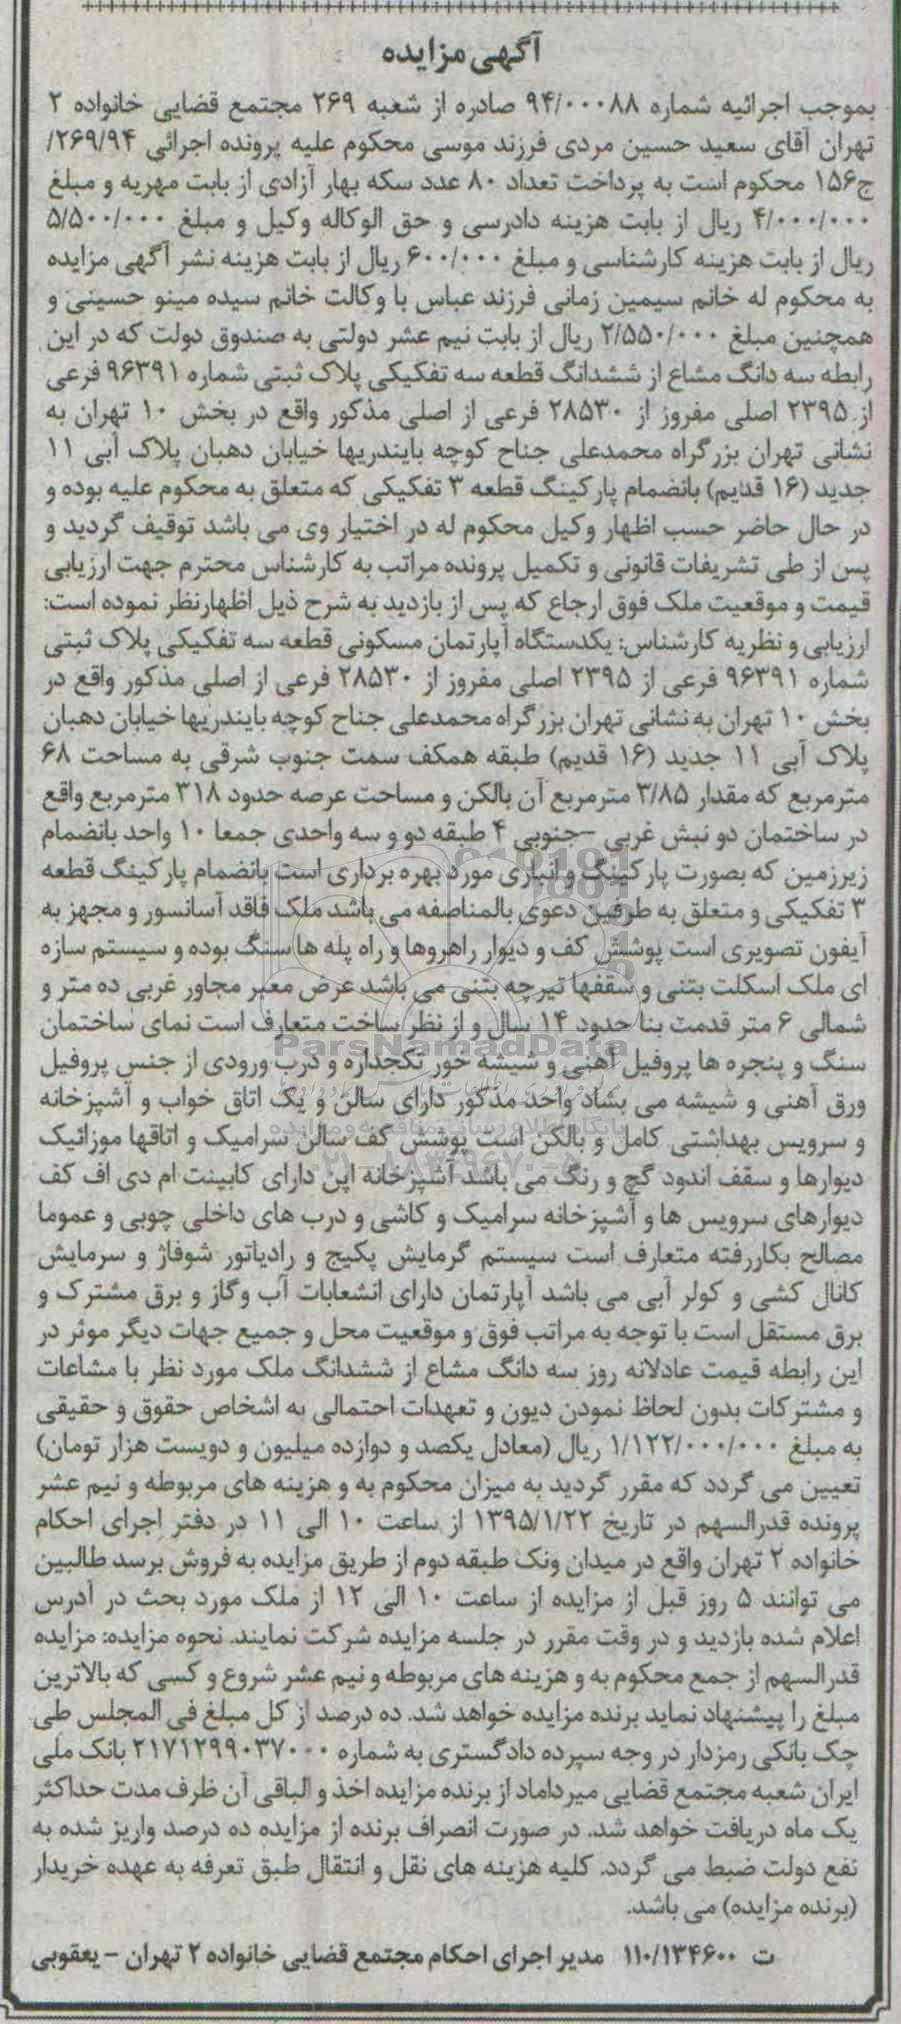 آگهی مزایده
بموجب اجرائیه شماره ۹۴/۰۰۰۸۸ صادره از شعبه ۲۶۹ مجتمع قضایی خانواده ۲
تهران آقای سعید حسین مردی فرزند موسی محکوم علیه پرونده اجرائی ۲۶۹/۹۴/
ج۱۵۶ محکوم است به پرداخت تعداد ۸۰ عدد سکه بهار آزادی از بابت مهریه و مبلغ
۴/۰۰۰/۰۰۰ ریال از بابت هزینه دادرسی و حق الوکاله وکیل و مبلغ ۵/۵۰۰/۰۰۰
ریال از بابت هزینه کارشناسی و مبلغ ۶۰۰/۰۰۰ ریال از بابت هزینه نشر آگهی مزایده
به محکوم له خانم سیمین زمانی فرزند عباس با وکالت خانم سیده مینو حسینی و
همچنین مبلغ ۲/۵۵۰/۰۰۰ ریال از بابت نیم عشر دولتی به صندوق دولت که در این
رابطه سه دانگ مشاع از ششدانگ قطعه سه تفکیکی پلاک ثبتی شماره ۹۶۳۹۱ فرعی
از ۲۳۹۵ اصلی مفروز از ۲۸۵۳۰ فرعی از اصلی مذکور واقع در بخش ۱۰ تهران به
نشانی تهران بزرگراه محمدعلی جناح کوچه بایندریها خیابان دهبان پلاک آبی ۱۱
جدید (۱۶ قدیم) بانضمام پارکینگ قطعه ۳ تفکیکی که متعلق به محکوم علیه بوده و
در حال حاضر حسب اظهار وکیل محکوم له در اختیار وی می باشد توقیف گردید و
پس از طی تشریفات قانونی و تکمیل پرونده مراتب به کارشناس محترم جهت ارزیابی
قیمت و موقعیت ملک فوق ارجاع که پس از بازدید به شرح ذیل اظهارنظر نموده است:
ارزیابی و نظریه کارشناس: یکدستگاه آپارتمان مسکونی قطعه سه تفکیکی پلاک ثبتی
شماره ۹۶۳۹۱ فرعی از ۲۳۹۵ اصلی مفروز از ۲۸۵۳۰ فرعی از اصلی مذکور واقع در
بخش ۱۰ تهران به نشانی تهران بزرگراه محمدعلی جناح کوچه بایندریها خیابان دهبان
پلاک آبی ۱۱ جدید (۱۶ قدیم) طبقه همکف سمت جنوب شرقی به مساحت ۶۸
مترمربع که مقدار ۳/۸۵ مترمربع آن بالکن و مساحت عرصه حدود ۳۱۸ مترمربع واقع
در ساختمان دو نبش غربی -جنوبی ۴ طبقه دو و سه واحدی جمعا ۱۰ واحد بانضمام
زیرزمین که بصورت پارکینگ و انباری مورد بهره برداری است بانضمام پارکینگ قطعه
۳ تفکیکی و متعلق به طرفین دعوی بالمناصفه می باشد ملک فاقد آسانسور و مجهز به
آیفون تصویری است پوشش کف و دیوار راهروها و راه پله ها سنگ بوده و سیستم سازه
ای ملک اسکلت بتنی و سقفها تیرچه بتنی می باشد عرض معبر مجاور غربی ده متر و
شمالی ۶ متر قدمت بنا حدود ۱۴ سال و از نظر ساخت متعارف است نمای ساختمان
سنگ و پنجره ها پروفیل آهنی و شیشه خور تکجداره و درب ورودی از جنس پروفیل
ورق آهنی و شیشه می بشاد واحد مذکور دارای سالن و یک اتاق خواب و آشپزخانه
و سرویس بهداشتی کامل و بالکن است پوشش کف سالن سرامیک و اتاقها موزائیک
دیوارها و سقف اندود گچ و رنگ می باشد آشپزخانه اپن دارای کابینت ام دی اف کف
دیوارهای سرویس ها و آشپزخانه سرامیک و کاشی و درب های داخلی چوبی و عموما
مصالح بکاررفته متعارف است سیستم گرمایش پکیج و رادیاتور شوفاژ و سرمایش
کانال کشی و کولر آبی می باشد آپارتمان دارای انشعابات آب وگاز و برق مشترک و
برق مستقل است با توجه به مراتب فوق و موقعیت محل و جمیع جهات دیگر موثر در
این رابطه قیمت عادلانه روز سه دانگ مشاع از ششدانگ ملک مورد نظر با مشاعات
و مشترکات بدون لحاظ نمودن دیون و تعهدات احتمالی به اشخاص حقوق و حقیقی
به مبلغ ۱/۱۲۲/۰۰۰/۰۰۰ ریال (معادل یکصد و دوازده میلیون و دویست هزار تومان)
تعیین می گردد که مقرر گردید به میزان محکوم به و هزینه های مربوطه و نیم عشر
پرونده قدرالسهم در تاریخ ۱۳۹۵/۱/۲۲ از ساعت ۱۰ الی ۱۱ در دفتر اجرای احکام
خانواده ۲ تهران واقع در میدان ونک طبقه دوم از طریق مزایده به فروش برسد طالبین
می توانند ۵ روز قبل از مزایده از ساعت ۱۰ الی ۱۲ از ملک مورد بحث در آدرس
اعلام شده بازدید و در وقت مقرر در جلسه مزایده شرکت نمایند. نحوه مزایده: مزایده
قدرالسهم از جمع محکوم به و هزینه های مربوطه و نیم عشر شروع و کسی که بالاترین
مبلغ را پیشنهاد نماید برنده مزایده خواهد شد. ده درصد از کل مبلغ فی المجلس طی
چک بانکی رمزدار در وجه سپرده دادگستری به شماره ۲۱۷۱۲۹۹۰۳۷۰۰۰ بانک ملی
ایران شعبه مجتمع قضایی میرداماد از برنده مزایده اخذ و الباقی آن ظرف مدت حداکثر
یک ماه دریافت خواهد شد. در صورت انصراف برنده از مزایده ده درصد واریز شده به
نفع دولت ضبط می گردد. کلیه هزینه های نقل و انتقال طبق تعرفه به عهده خریدار
(برنده مزایده) می باشد.
ت ۱۱۰/۱۳۴۶۰۰ مدیر اجرای احکام مجتمع قضایی خانواده ۲ تهران - یعقوبی
ParsNamadData